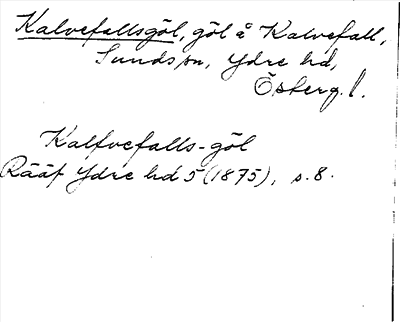 Kalvefallsgöl, göl å Kalvefall,
Sunds sn, Ydre hd,
Österg. l.
Kalfvefalls-göl
Rääf Ydre hd 5 (1875), s. 8.